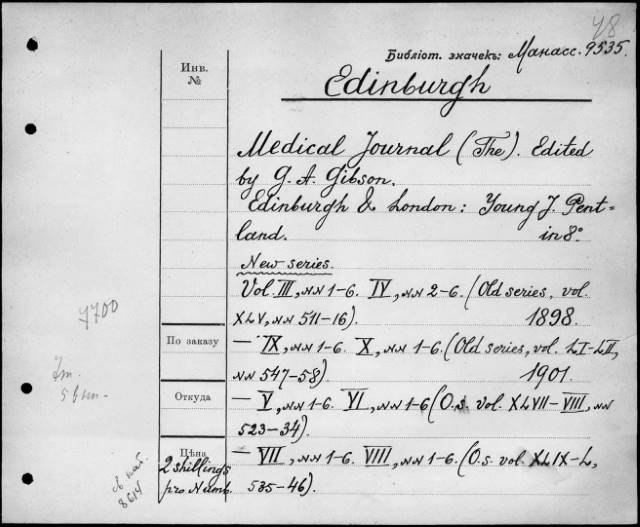 48
Библіот. значекъ: Манасс. 9535.
Инв.
№
Edinburgh
Medical Journal (The). Edited
by G. A. Gibson.
Edinburgh & London: Young J. Pent=
land. in 8°
New series.
Vol. III, NN 1-6. IV, NN 2-6. (Old series, vol.
XLV, NN 511-16). 1898.
7700
По заказу
— IX, NN 1-6. X, NN 1-6. (Old series, vol. LI-LII,
NN 547-58). 1901.
Откуда
— V, NN 1-6. VI, NN 1-6 (O.s. vol. XLVII-VIII, NN
523-34).
Цѣна
2 shillings
pro Numb.
— VII, NN 1-6. VIII, NN 1-6. (O.s. vol. XLIX-L,
535-46).
8614